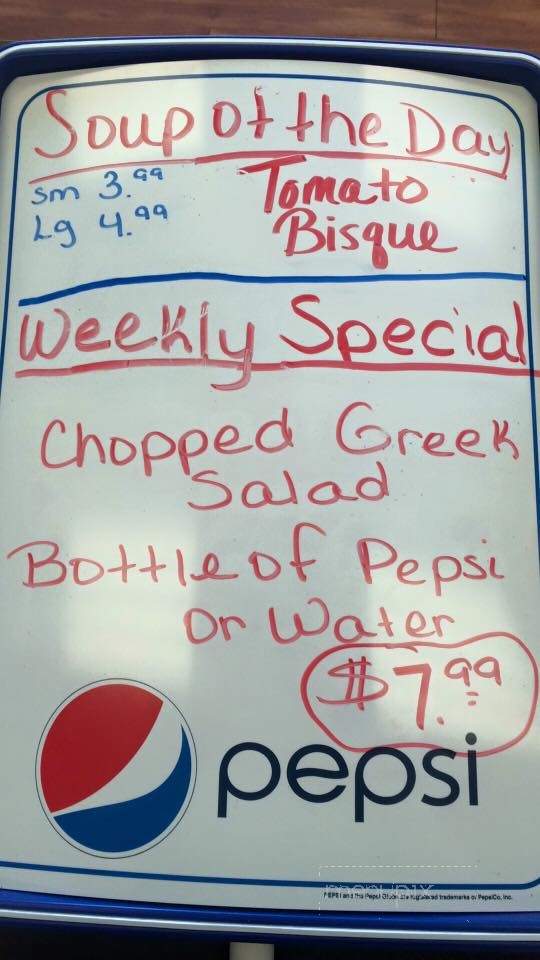 Soup of the Day
Sm 3.99
Lg 4.99
Tomato
Bisque
Weekly Special
Chopped Greek
Salad
Bottle of Pepsi
Or Water
$7.99
pepsi
menupix
PEPSI and the Pepsi Globe are registered trademarks of PepsiCo, Inc.